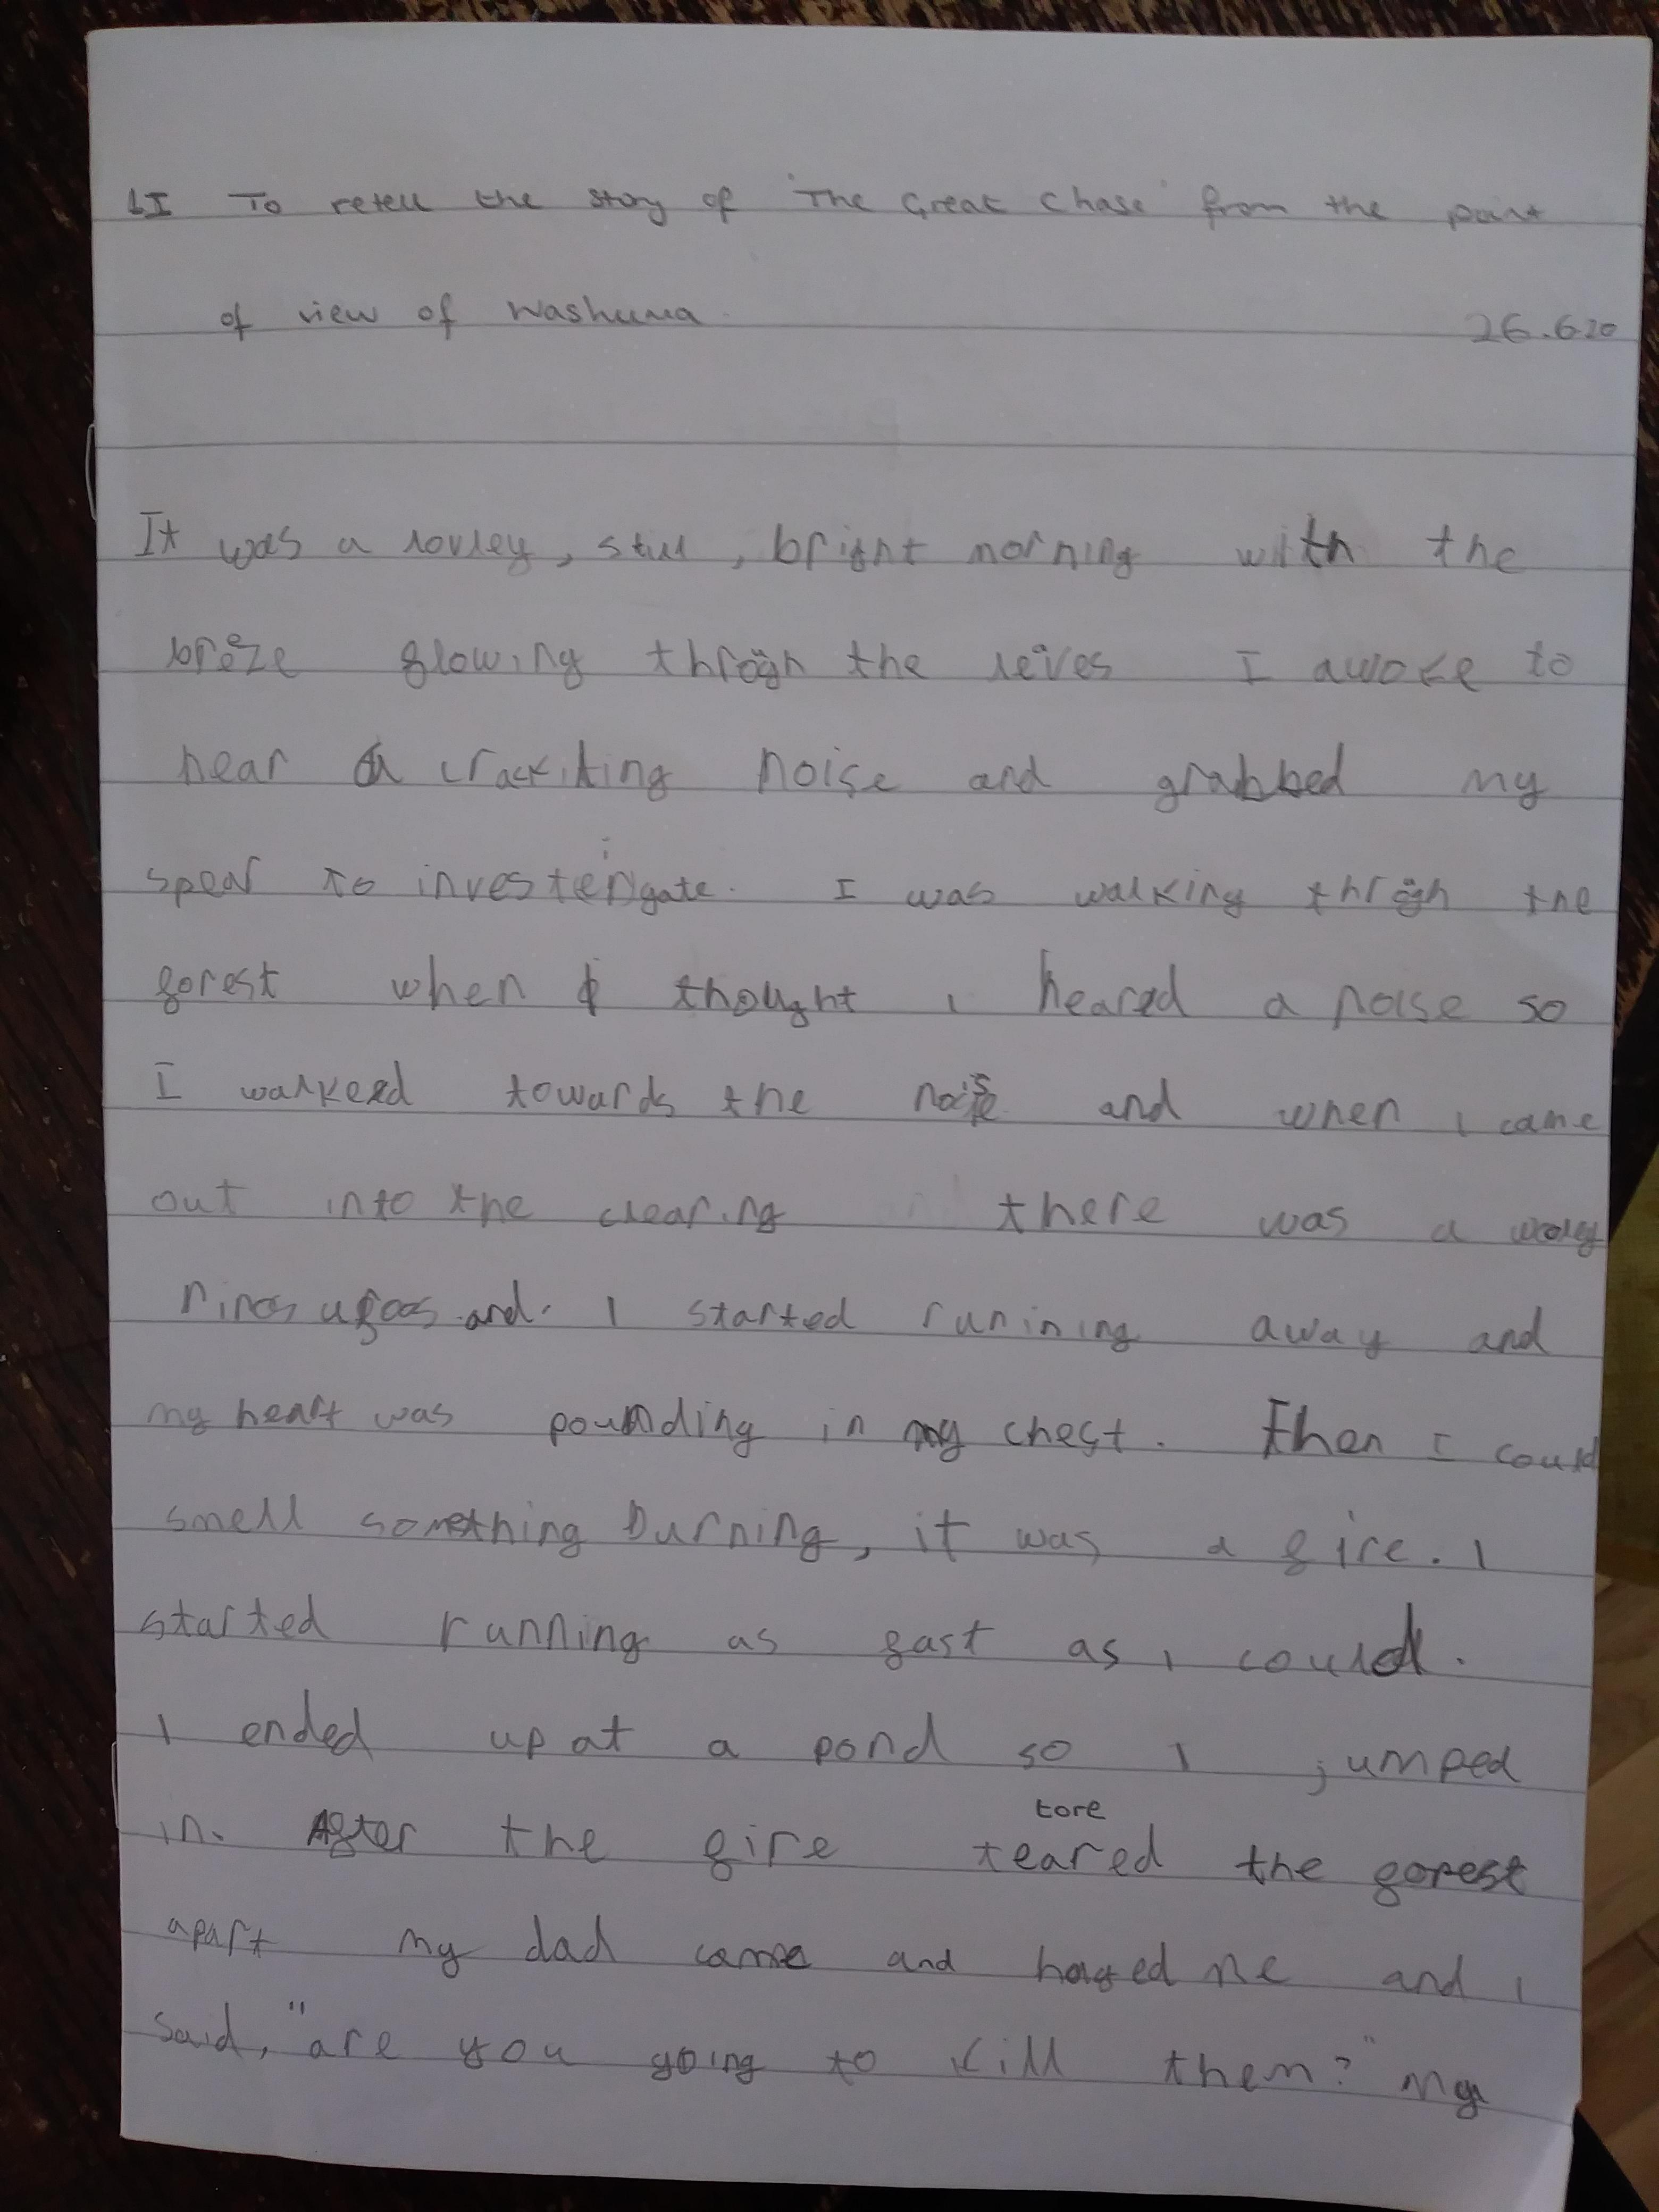 LI To retell the story of 'The Great Chase' from the point
of view of Washuma.
26.6.20
It was a lovley, still, bright morning with the
breze flowing throgh the leives I awoke to
hear a crackiling noise and grabbed my
spear to investigate. I was walking throgh the
forest when I thought i heared a noise so
I walked towards the noise and when i came
out into the clearing there was a wooly
and. I started runining away and
my heart was pounding in my chest. Then I could
smell something burning, it was a fire. I
started running as fast as i could.
I ended up at a pond so I jumped
in. After the fire teared tore the forest
apart my dad came and huged me and i
said, "are you going to kill them?" My